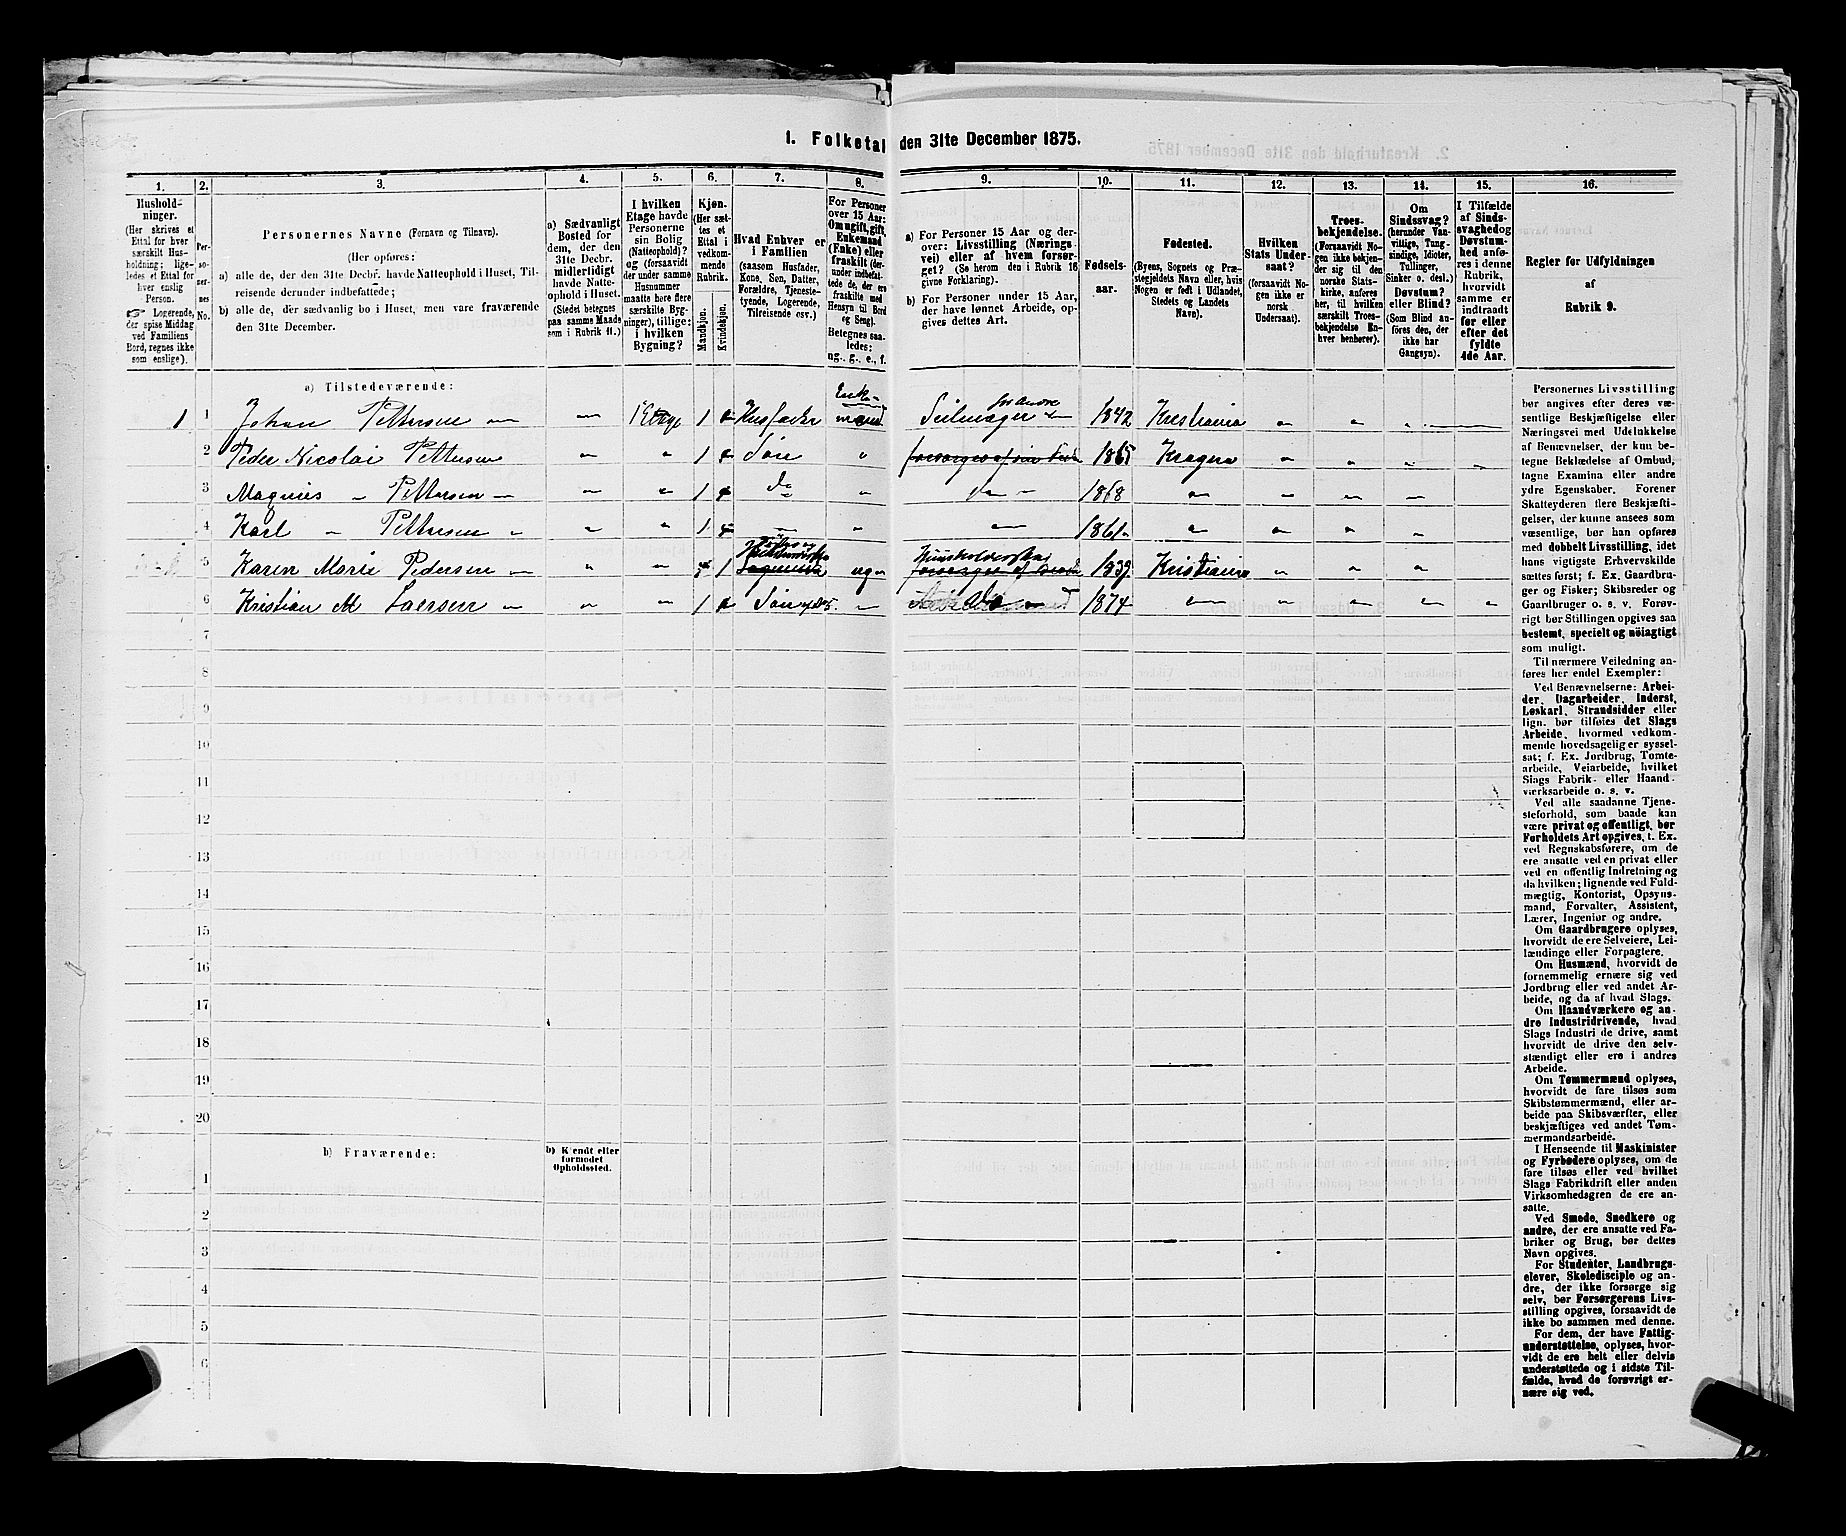 1. Folketal den 31te December 1875.
1. 2. 3. 4. 5. 6. 7. 8. 9. 10. 11. 12. 13. 14. 15. 16.
Hushold-
ninger.
(Her skrives et
Ettal for hver
særskilt Hus-
holdning; lige-
ledes et Ettal for
hver enslig
Person.
☞ Logerende,
der spise Middag
ved Familiens
Bord, regnes ikke
som enslige).
Per-
so-
ner-
nes
No.
Personernes Navne (Fornavn og Tilnavn).
(Her opføres:
a) alle de, der den 31te Decbr. havde Natteophold i Huset, Til-
reisende derunder indbefattede;
b) alle de, der sædvanlig bo i Huset, men vare fraværende
den 31te December.
a) Sædvanligt
Bosted for
dem, der den
31te Decbr.
midlertidigt
havde Natte-
ophold i Huset.
(Stedet betegnes
paa samme Maade
som i Rubrik 11.)
I hvilken
Etage havde
Personerne
sin Bolig
(Natteophold)?
og (forsaavidt
der under samme
Husnummer
maatte høre flere
særskilte Byg-
ninger), tillige:
i hvilken
Bygning?
Kjøn.
(Her sæt-
tes et
Ettal i
vedkom-
mende
Rubrik.
Mandkjøn.
Kvindekjøn.
Hvad Enhver er
i Familien
(saasom Husfader,
Kone, Søn, Datter,
Forældre, Tjeneste-
tyende, Logerende,
Tilreisende osv.)
For Personer
over 15 Aar:
Om ugift, gift,
Enkemand
(Enke) eller
fraskilt (der-
under indbefat-
tede de, der ere
fraskilte med
Hensyn til Bord
og Seng).
Betegnes saa-
ledes:
ug., g., e., f.
a) For Personer 15 Aar og der-
over: Livsstilling (Nærings-
vei) eller af hvem forsør-
get? (Se herom den i Rubrik 16
givne Forklaring).
b) For Personer under 15 Aar,
der have lønnet Arbeide, op-
gives dettes Art.
Fødsels-
aar.
Fødested.
(Byens, Sognets og Præ-
stegjeldets Navn eller, hvis
Nogen er født i Udlandet,
Stedets og Landets
Navn).
Hvilken
Stats Under-
saat?
(forsaavidt No-
gen ikke er
norsk
Undersaat).
Troes-
bekjendelse.
(Forsaavidt No-
gen ikke bekjen-
der sig til den
norske Stats-
kirke, anføres
her, til hvilken
særskilt Troes-
bekjendelse En-
hver henhører).
Om
Sindssvag?
(herunder Van-
vittige, Tung-
sindige, Idioter,
Tullinger,
Sinker o. desl.)
Døvstum?
eller Blind?
(Som Blind an-
føres den, der
ikke har
Gangsyn).
I Tilfælde
af Sinds-
svaghed og
Døvstum-
hed anfø-
res i denne
Rubrik,
hvorvidt
samme er
indtraadt
før eller
efter det
fyldte
4de Aar.
Regler for Udfyldningen
af
Rubrik 9.
a) Tilstedeværende:
1 1 Johan Pettersen 1 Etage 1 Husfader Enke-mand Seilmager for Andre 1842 Kristiania
2 Peder Nicolai Pettersen 1 Søn 1865 Kragerø
3 Magnus Pettersen 1 do 1868
4 Karl Pettersen 1 1861
5 Karen Marie Pedersen 1 ug Huusholderske 1839 Kristiania
6 Kristian M Larsen 1 Søn 1874
7
8
9
10
11
12
13
14
15
16
17
18
19
20
b) Fraværende:
b) Kjendt eller
formodet
Opholdssted.
1
2
3
4
5
6
Personernes Livsstilling
bør angives efter deres væ-
sentlige Beskjæftigelse eller
Næringsvei med Udelukkelse
af Benævnelser, der kun be-
tegne Beklædelse af Ombud,
tagne Examina eller andre
ydre Egenskaber. Forener
Skatteyderen flere Beskjæfti-
gelser, der kunne ansees som
væsentlige, bør han opføres
med dobbelt Livsstilling, idet
hans vigtigste Erhvervskilde
sættes først; f. Ex. Gaardbru-
ger og Fisker; Skibsreder og
Gaardbruger o. s. v. Forøv-
rigt bør Stillingen opgives saa
bestemt, specielt og nöiagtigt
som muligt.
Til nærmere Veiledning an-
føres her endel Exempler:
Ved Benævnelserne: Arbei-
der, Dagarbeider, Inderst,
Løskarl, Strandsidder eller
lign. bør tilføies det Slags
Arbeide, hvormed vedkom-
mende hovedsagelig er syssel-
sat; f. Ex. Jordbrug, Tomte-
arbeide, Veiarbeide, hvilket
Slags Fabrik- eller Haand-
værksarbeide o. s. v.
Ved alle saadanne Tjene-
steforhold, som baade kan
være privat og offentligt, bør
Forholdets Art opgives, t. Ex.
ved Regnskabsførere, om de
ere ansatte ved en privat eller
ved en offentlig Indretning og
da hvilken; lignende ved Fuld-
mægtig, Kontorist, Opsyns-
mand, Forvalter, Assistent,
Lærer, Ingeniør og andre.
Om Gaardbrugere oplyses,
hvorvidt de ere Selveiere, Lei-
lændinge eller Forpagtere.
Om Husmænd, hvorvidt de
fornemmelig ernære sig ved
Jordbrug eller ved andet Ar-
beide, og da af hvad Slags.
Om Haandværkere og an-
dre Industridrivende, hvad
Slags Industri de drive, samt
hvorvidt de drive den selv-
stændigt eller ere i andres
Arbeide.
Om Tømmermænd oplyses,
hvorvidt de fare tilsøs som
Skibstømmermænd, eller ar-
beide paa Skibsværfter, eller
beskjæftiges ved andet Tøm-
mermandsarbeide.
I Henseende til Maskinister
og Fyrbødere oplyses, om de
fare tilsøs eller ved hvilket
Slags Fabrikdrift eller anden
Virksomhedsgren de ere an-
satte.
Ved Smede, Snedkere og
andre, der ere ansatte ved Fa-
briker og Brug, bør dettes
Navn opgives.
For Studenter, Landbrugs-
elever, Skoledisciple og an-
dre, der ikke forsørge sig
selv, bør Forsørgerens Livs-
stilling opgives, forsaavidt de
ikke bo sammen med denne.
For dem, der have Fattig-
understøttelse, oplyses, hvor-
vidt de ere helt eller delvis
understøttede og i sidste Til-
fælde, hvad de forøvrigt er-
nære sig ved.